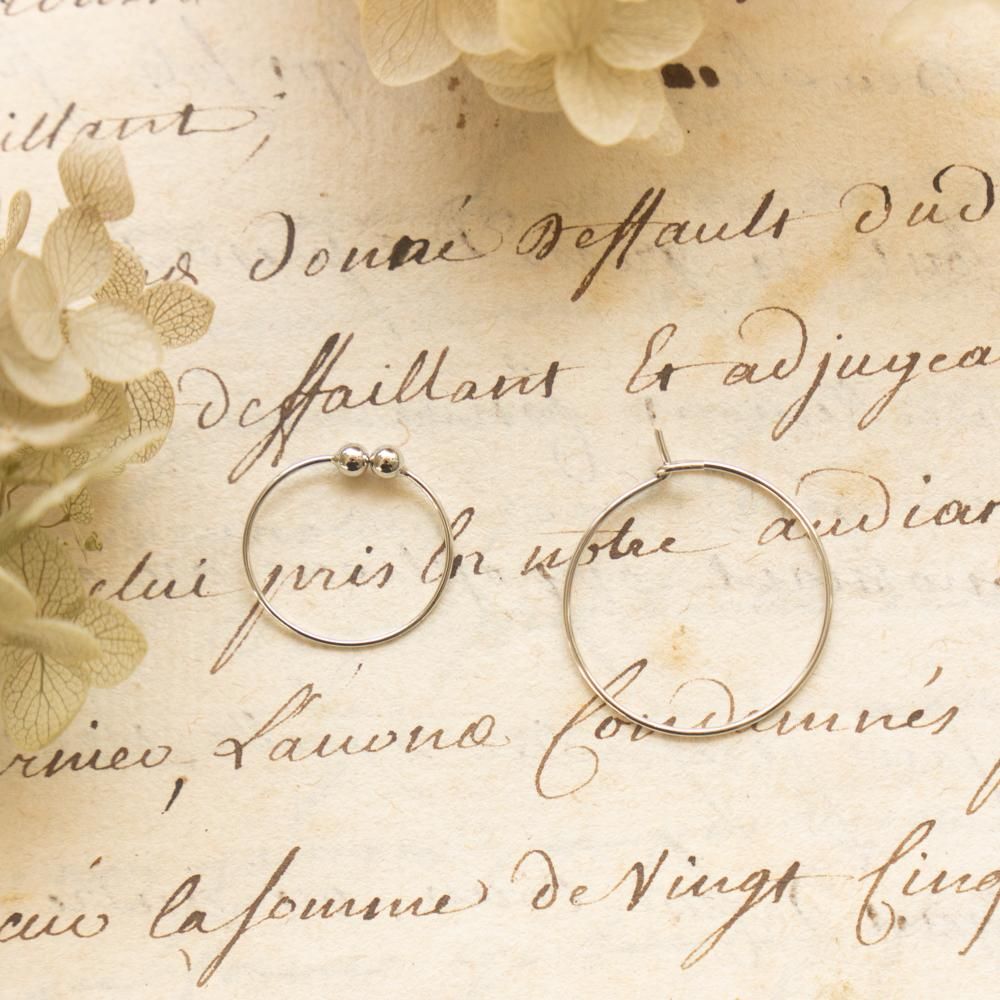 illant,
donné Deffault dud
deffaillant Et adjugea
celui pris En notre audian
ernier L'auons Condamnés
la somme de Vingt Cinq